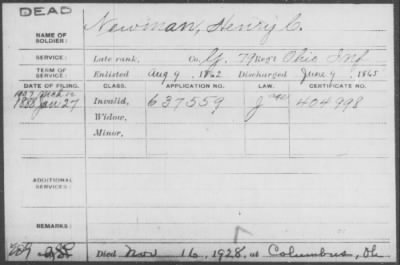 DEAD
NAME OF SOLDIER: Newman, Henry C.
SERVICE: Late rank, Co. G, 79 Reg't Ohio Inf
TERM OF SERVICE: Enlisted Aug 9, 1862 Discharged June 9, 1865
DATE OF FILING. CLASS. APPLICATION NO. LAW. CERTIFICATE NO.
1888 Jan 27 Invalid, 637559 404998
Widow,
Minor,
ADDITIONAL SERVICES:
REMARKS:
Died Nov 16, 1928, at Columbus, Oh.